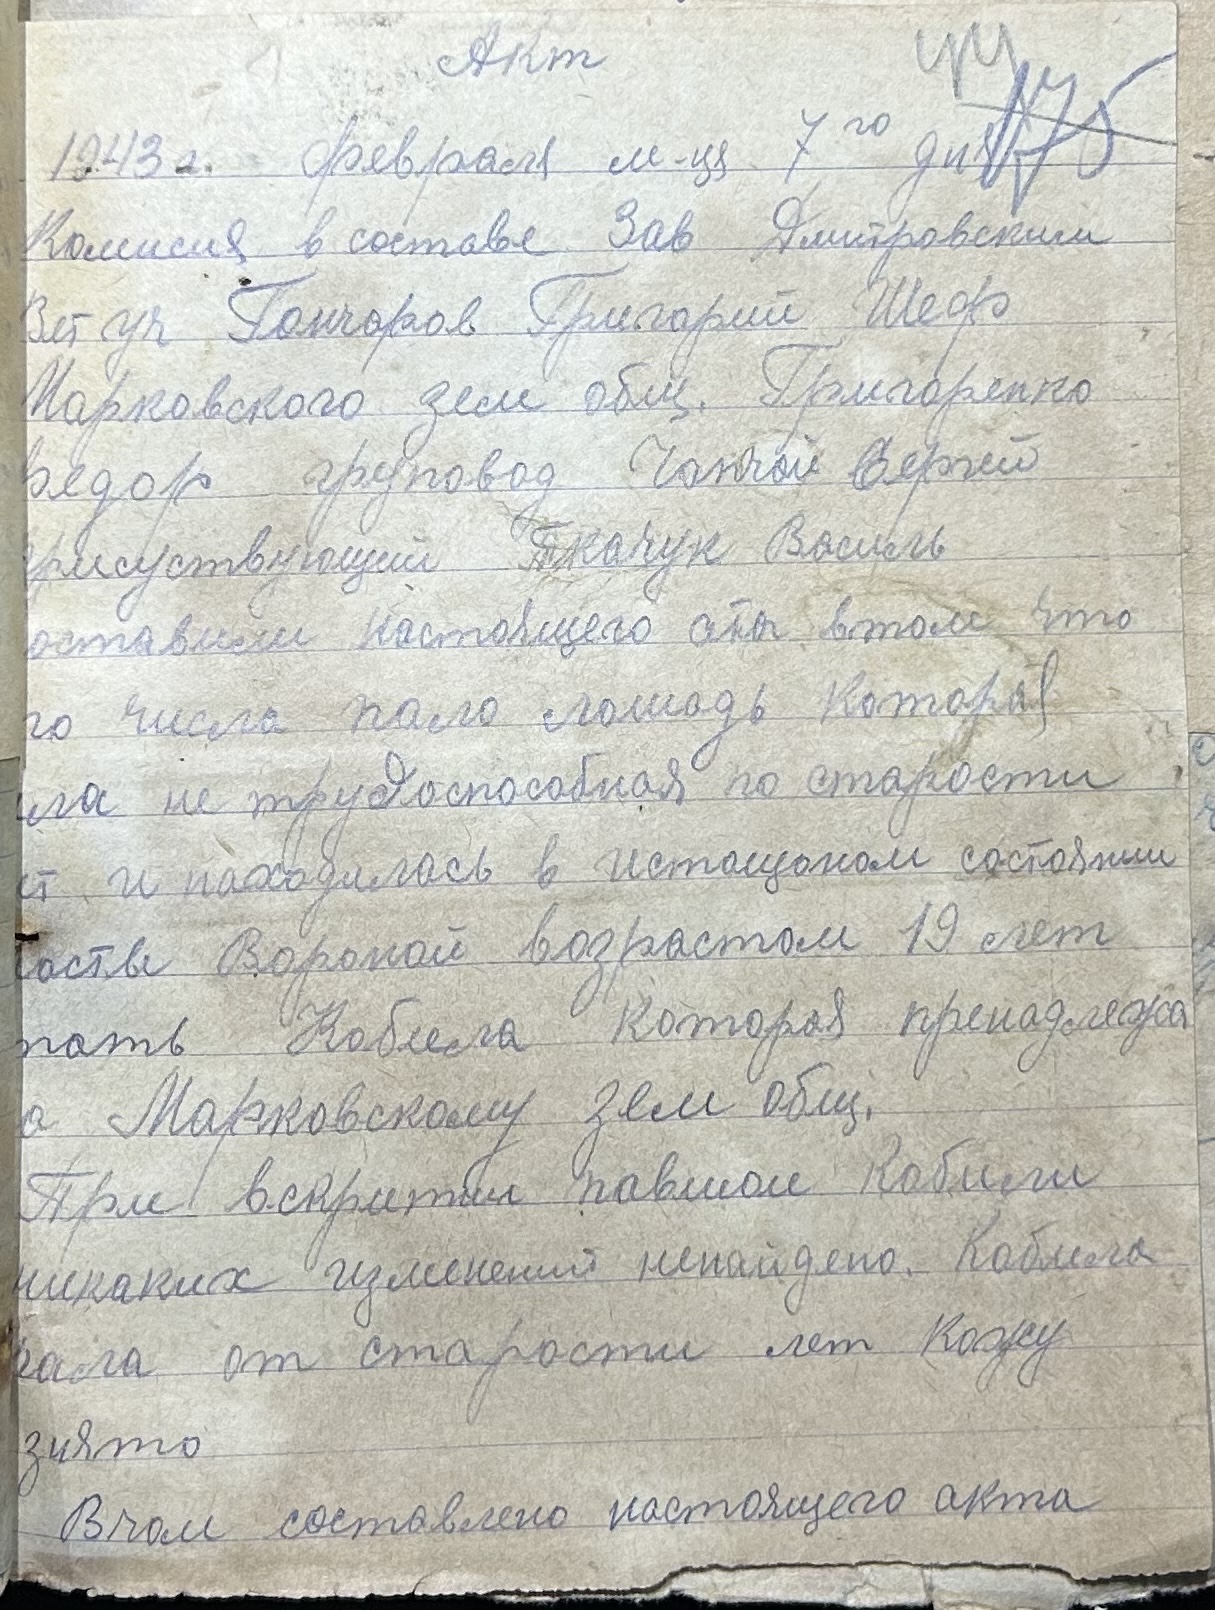 Акт
175
1943 г. февраля м-ця 7го дня
Комисия в составе Зав Дмитровским
Вет уч Гончаров Григорий Шеф
Марковского зем общ. Григоренко
Федор груповод Чапчай Сергей
присуствующий Ткачук Василь
оставили настоящего акта втом что
го числа пало лошадь которая
ла не трудоспособная по старости
ет и находилась в истощоном состоянии
масты Вороной возрастом 19 лет
тать Кобила которая пренадлежа
а Марковскому зем общ.
При вскритии павшои Кобили
никаких изменений ненайдено. Кобила
пала от старости лет кожу
знято
Вчом составлено настоящего акта